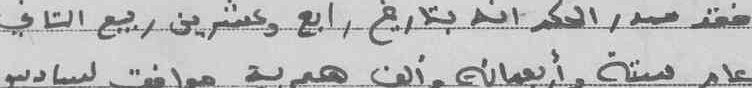 فقد صدر الحكم انه بتاريخ رابع وعشرين ربيع الثاني
عام ستة وأربعمائة وألف هجرية موافق لسادس